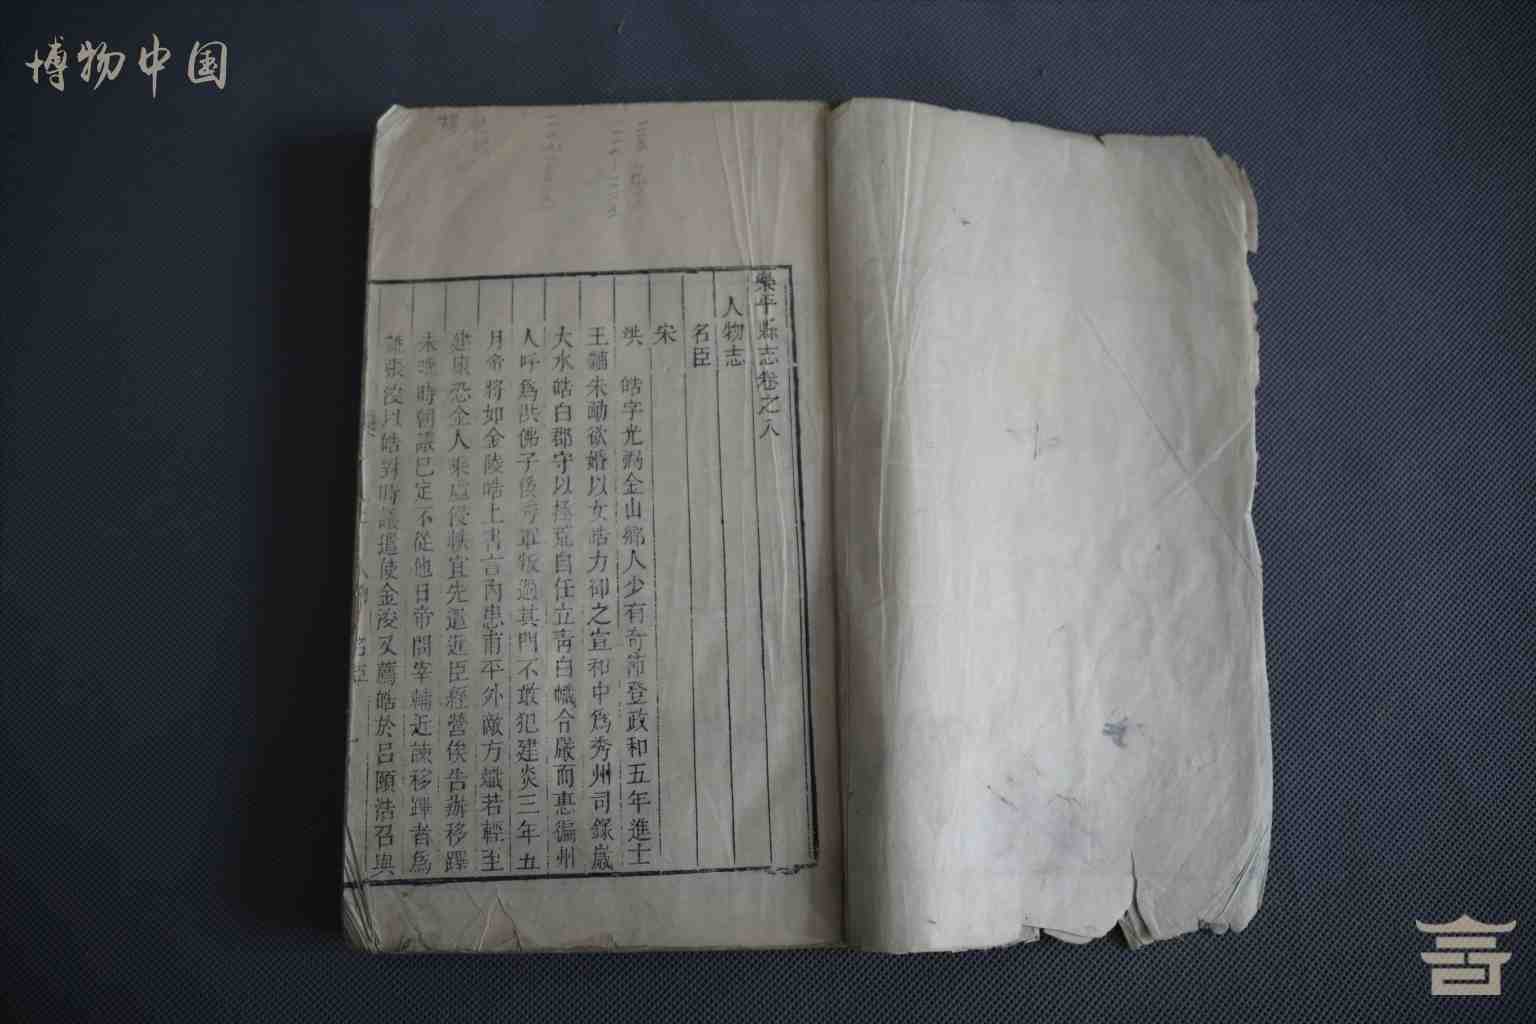 博物中国
樂平縣志卷之八
人物志
名臣
宋
洪 皓字光弼金山鄉人少有奇節登政和五年進士
王黼朱勔欲婚以女皓力卻之宣和中爲秀州司錄歲
大水皓白郡守以拯荒自任立靑白幟合嚴而惠徧州
人呼爲洪佛子後秀軍叛過其門不敢犯建炎三年五
月帝將如金陵皓上書言內患甫平外敵方熾若輕至
建康恐金人乘虛侵軼宜先遣近臣經營俟告辦移蹕
未晚時朝議已定不從他日帝問宰輔近諫移蹕者爲
誰張浚以皓對時議遣使金浚又薦皓於呂頤浩召與